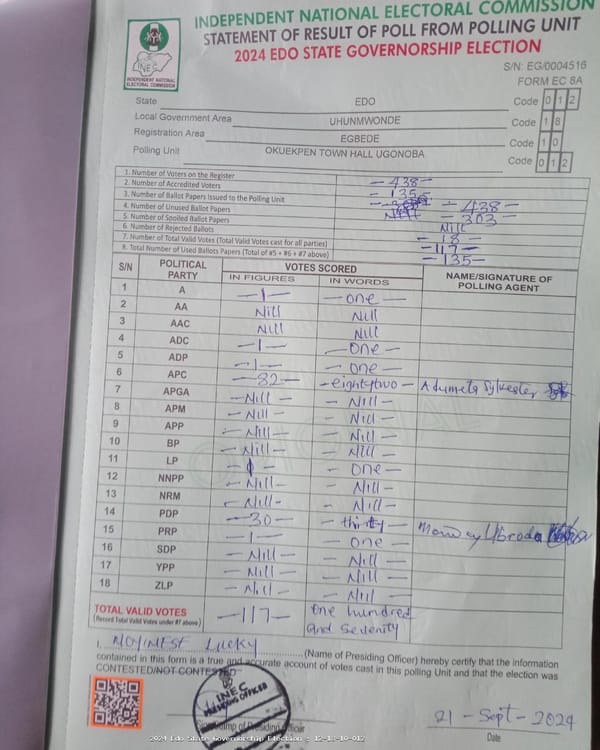 INDEPENDENT NATIONAL ELECTORAL COMMISSION
STATEMENT OF RESULT OF POLL FROM POLLING UNIT
2024 EDO STATE GOVERNORSHIP ELECTION
INEC
INDEPENDENT NATIONAL ELECTORAL COMMISSION
S/N: EG/0004516
FORM EC 8A
State EDO Code 0 1 2
Local Government Area UHUNMWONDE Code 1 8
Registration Area EGBEDE Code 1 0
Polling Unit OKUEKPEN TOWN HALL UGONOBA Code 0 1 2
1. Number of Voters on the Register - 438 -
2. Number of Accredited Voters - 135 -
3. Number of Ballot Papers Issued to the Polling Unit - 438 -
4. Number of Unused Ballot Papers - 303 -
5. Number of Spoiled Ballot Papers Nill
6. Number of Rejected Ballots - 18 -
7. Number of Total Valid Votes (Total Valid Votes cast for all parties) - 117 -
8. Total Number of Used Ballots Papers (Total of #5 + #6 + #7 above) - 135 -
S/N POLITICAL PARTY VOTES SCORED NAME/SIGNATURE OF POLLING AGENT
IN FIGURES IN WORDS
1 A - 1 - - one -
2 AA Nill Nill
3 AAC Nill Nill
4 ADC - 1 - - One -
5 ADP - 1 - - One -
6 APC - 82 - - eightytwo - Adumeta Sylvester
7 APGA - Nill - - Nill -
8 APM - Nill - - Nill -
9 APP - Nill - - Nill -
10 BP - Nill - - Nill -
11 LP - 1 - - One -
12 NNPP - Nill - - Nill -
13 NRM - Nill - - Nill -
14 PDP - 30 - - thirty -
15 PRP - 1 - - One -
16 SDP - Nill - - Nill -
17 YPP - Nill - - Nill -
18 ZLP - Nill - - Nill -
TOTAL VALID VOTES - 117 - One hundred
(Record Total Valid Votes under #7 above) and seventy
I, Lucky (Name of Presiding Officer) hereby certify that the information
contained in this form is a true and accurate account of votes cast in this polling Unit and that the election was
CONTESTED/NOT CONTESTED
INEC
PRESIDING OFFICER
21 - Sept - 2024
Date
2024 Edo State Governorship Election : 12-18-10-012